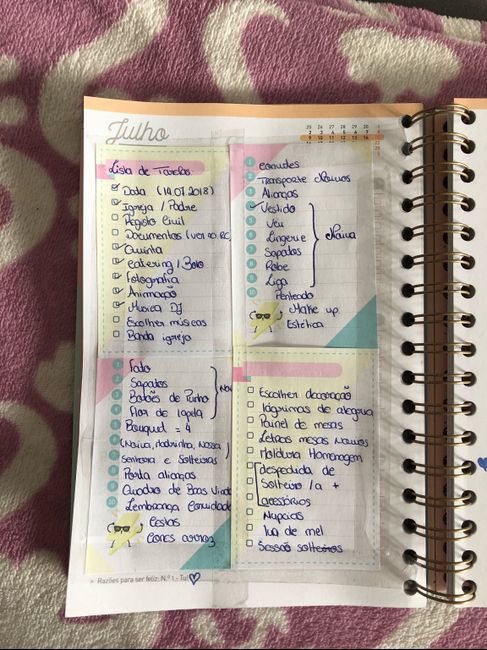 Julho
Lista de Tarefas
Data (14.07.2018)
Igreja / Padre
Registo Civil
Documentos (ver no RC)
Quinta
Catering / Bolo
Fotografia
Animação
Musica DJ
Escolher músicas
Banda igreja
1 Convites
2 Transporte Noivos
3 Alianças
Vestido
5 Véu
6 Lingerie
7 Sapatos
8 Robe
9 Liga
10 Penteado
Make up
Estética
Noiva
1 Fato
2 Sapatos
3 Botões de Punho
4 Flor de lapela
5 Bouquet = 4
(Noiva, madrinha, Nossa
Senhora e Solteiras)
Porta alianças
Quadro de Boas Vindas
10 Lembrança Convidados
Cestas
Cones arroz
Escolher decoração
lágrimas de alegria
Painel de mesas
Letras mesas Noivos
Moldura Homenagem
despedida de
Solteiro/a +
acessórios
Nupcias
lua de mel
Sessão solteiros
Razões para ser feliz: N.º 1 - Tu!